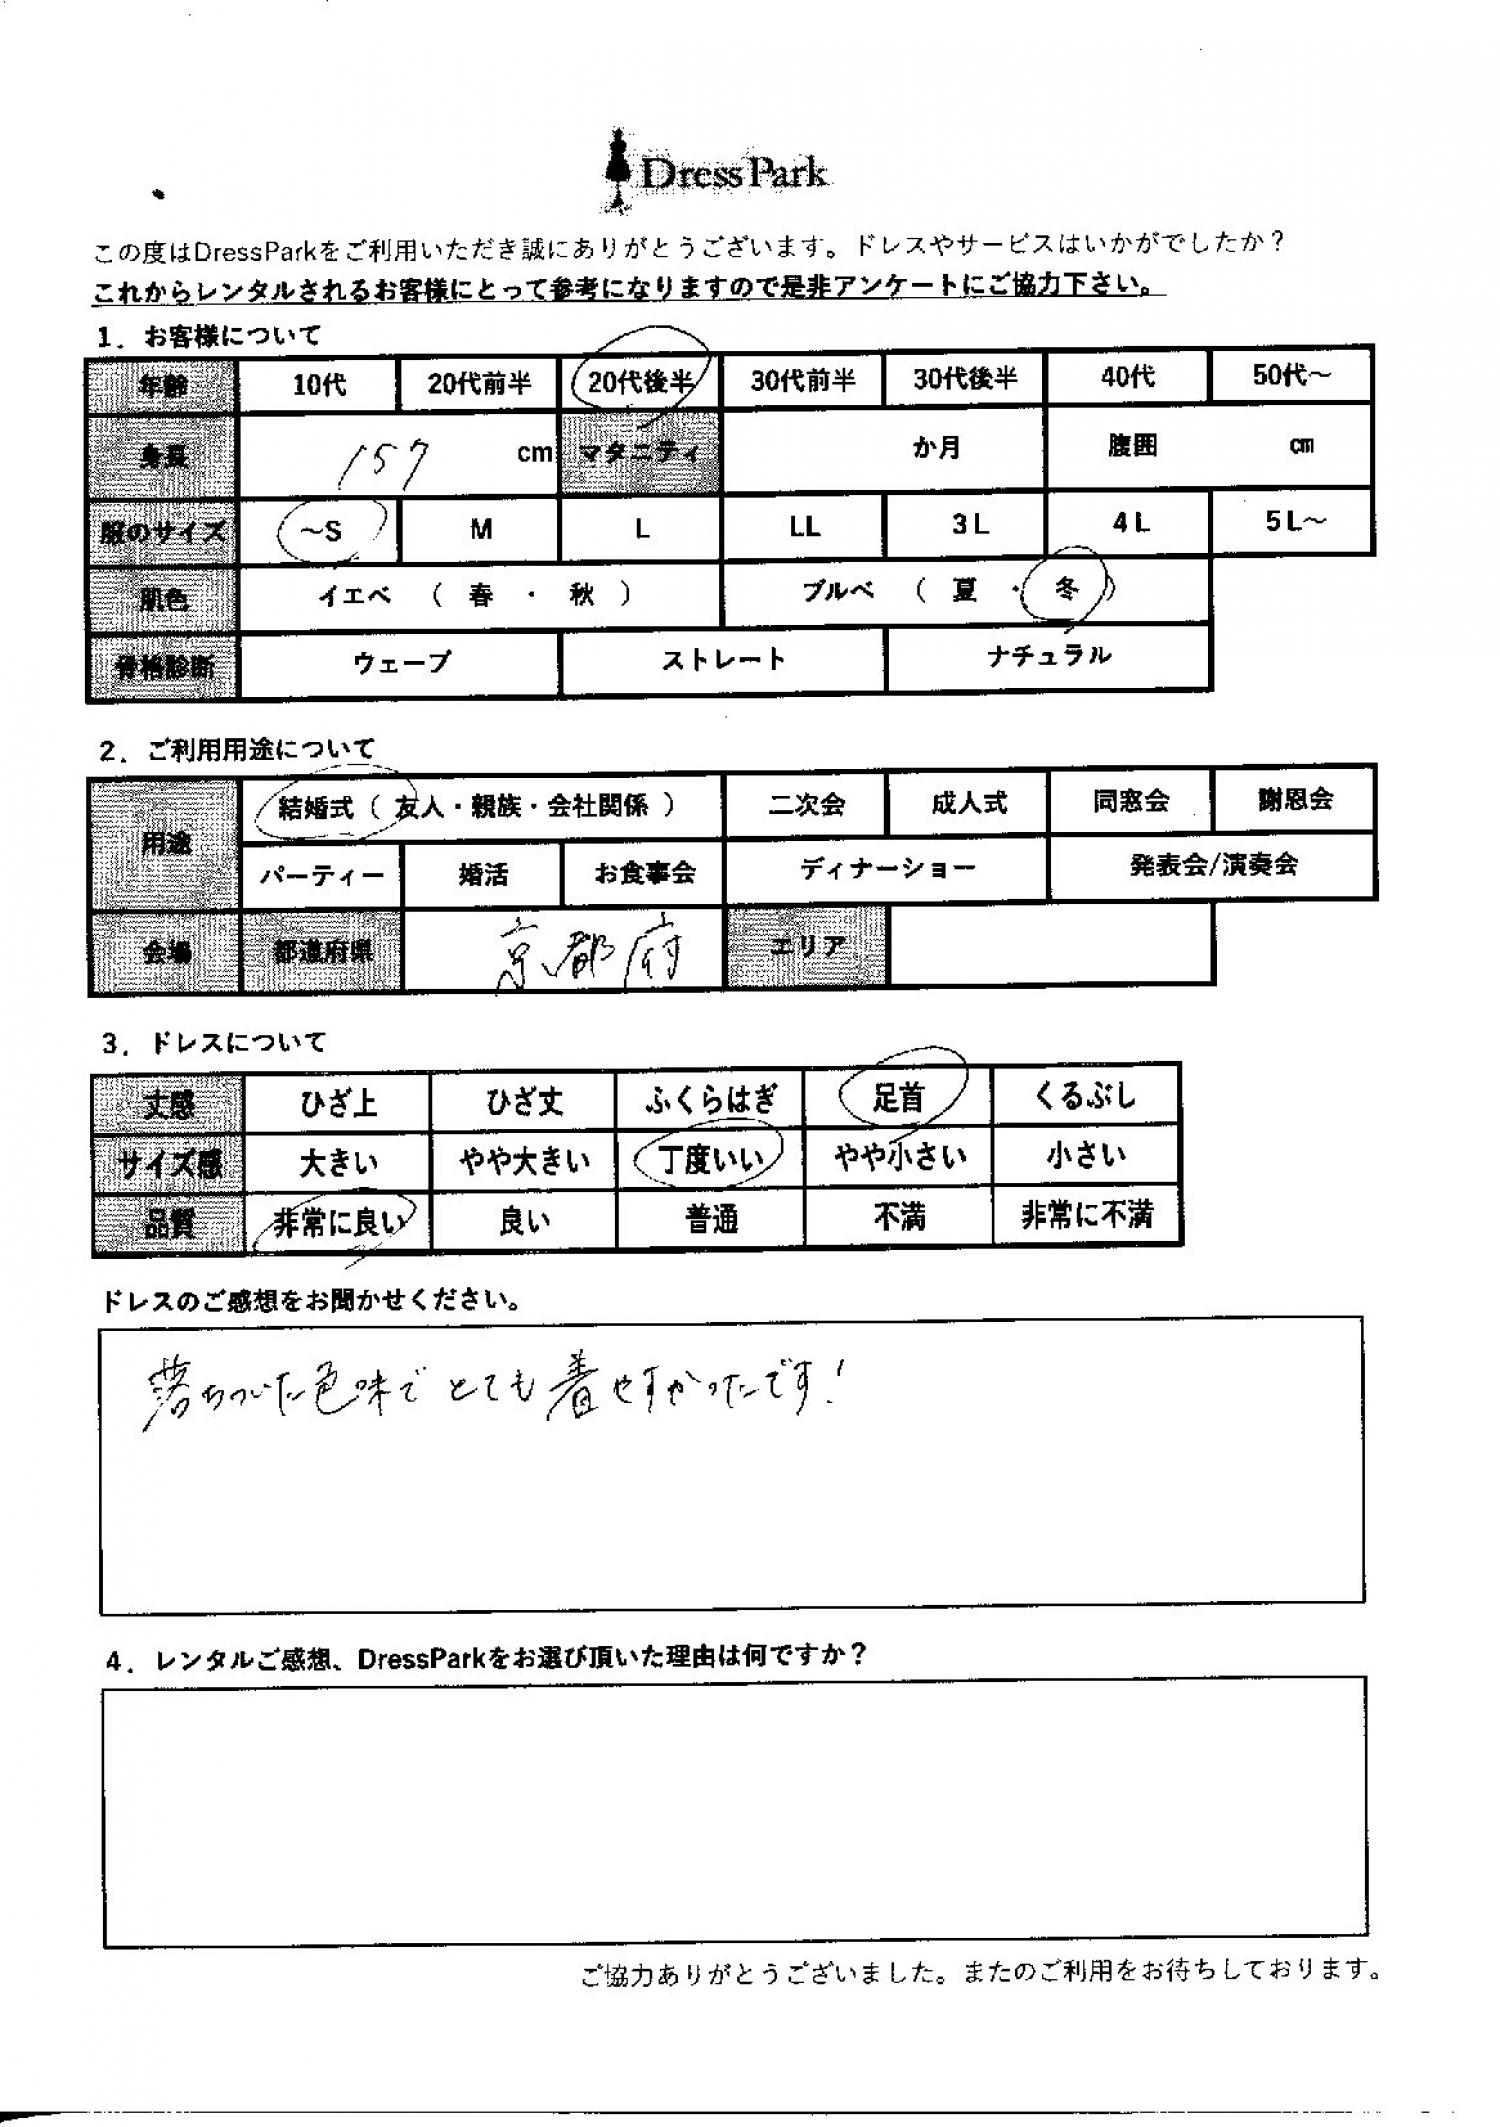 DressPark
この度はDressParkをご利用いただき誠にありがとうございます。ドレスやサービスはいかがでしたか？
これからレンタルされるお客様にとって参考になりますので是非アンケートにご協力下さい。
1．お客様について
年齢 10代 20代前半 20代後半 30代前半 30代後半 40代 50代～
身長 157 cm マタニティ か月 腹囲 cm
服のサイズ ～S M L LL 3L 4L 5L～
肌色 イエベ （ 春 ・ 秋 ） ブルベ （ 夏 ・ 冬 ）
骨格診断 ウェーブ ストレート ナチュラル
2．ご利用用途について
用途 結婚式（ 友人・親族・会社関係 ） 二次会 成人式 同窓会 謝恩会
パーティー 婚活 お食事会 ディナーショー 発表会/演奏会
会場 都道府県 京都府 エリア
3．ドレスについて
丈感 ひざ上 ひざ丈 ふくらはぎ 足首 くるぶし
サイズ感 大きい やや大きい 丁度いい やや小さい 小さい
品質 非常に良い 良い 普通 不満 非常に不満
ドレスのご感想をお聞かせください。
落ちついた色味でとても着やすかったです！
4．レンタルご感想、DressParkをお選び頂いた理由は何ですか？
ご協力ありがとうございました。またのご利用をお待ちしております。